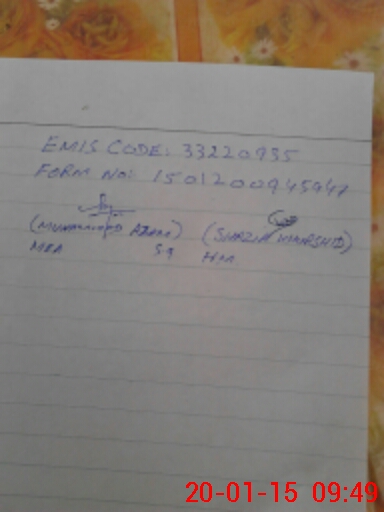 EMIS CODE: 33220935
FORM NO: 1501200945947
(MUHAMMAD AZAM) (SHAZIA KHURSHID)
MEA HM
20-01-15 09:49